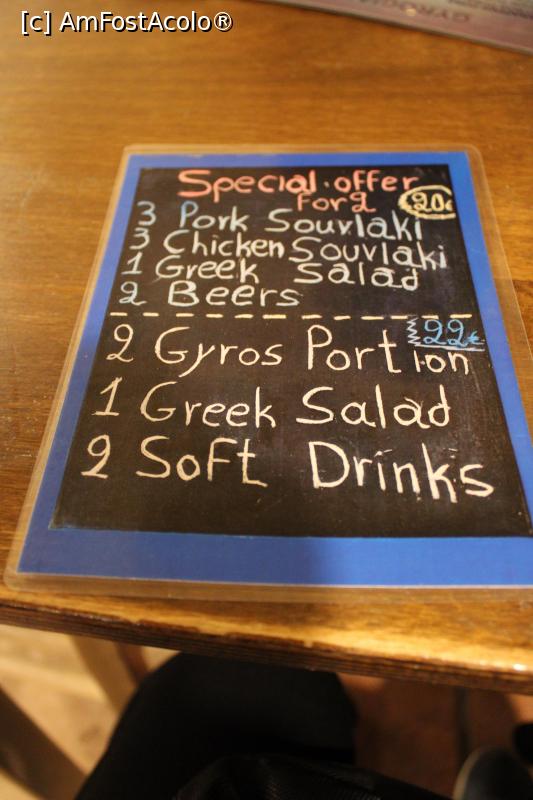 [c] AmFostAcolo®
Special offer
for 2 20€
3 Pork Souvlaki
3 Chicken Souvlaki
1 Greek Salad
2 Beers
22€
2 Gyros Portion
1 Greek Salad
2 Soft Drinks